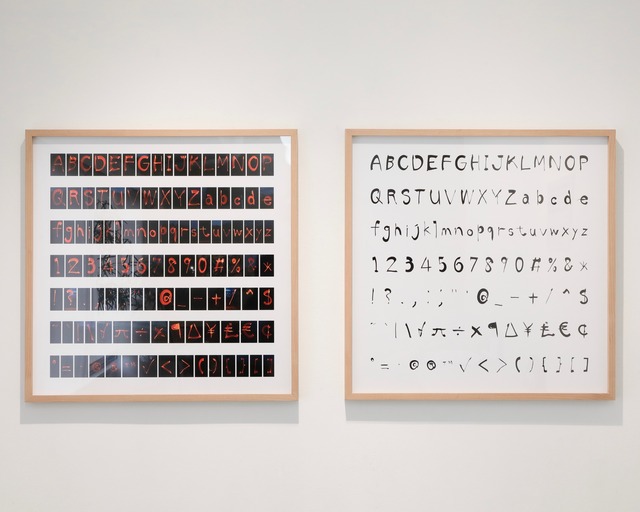 ABCDEFGHIJKLMNOP
QRSTUVWXYZabcde
fghijklmnopqrstuvwxyz
1234567890#%&*
!?.,:;'"@_-+/^$
|\√π÷×¶∆¥£€¢
°=©®™√<>(){}[]
ABCDEFGHIJKLMNOP
QRSTUVWXYZabcde
fghijklmnopqrstuvwxyz
1234567890#%&*
!?.,:;'"@_-+/^$
|\√π÷×¶∆¥£€¢
°=©®™√<>(){}[]